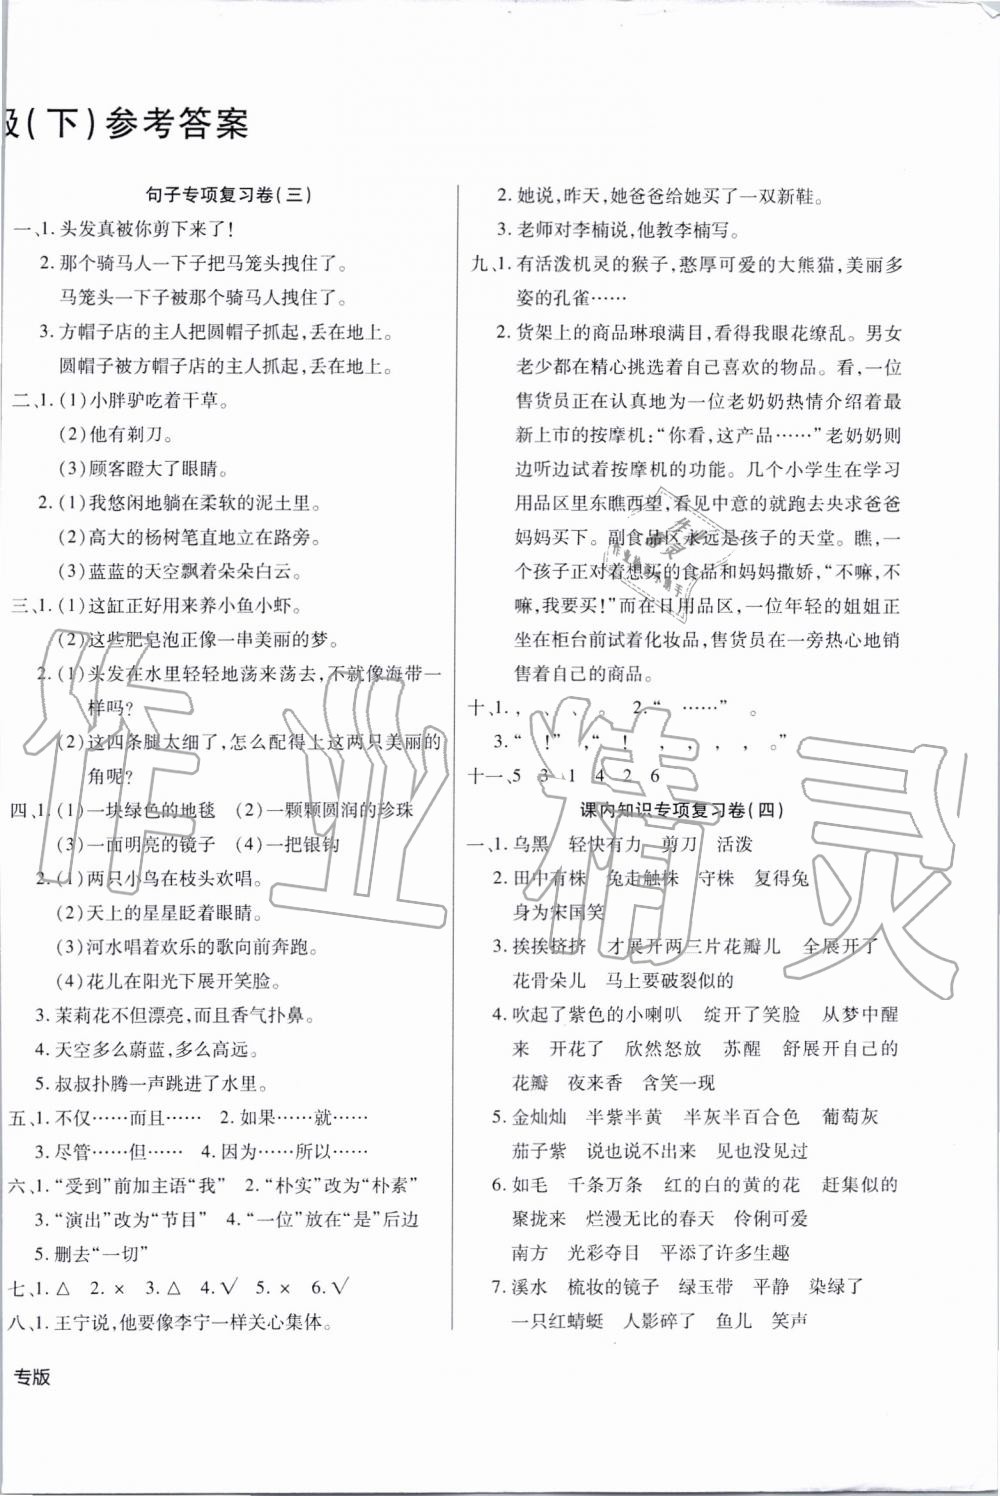 级(下)参考答案
句子专项复习卷(三)
一、1. 头发真被你剪下来了!
2. 那个骑马人一下子把马笼头拽住了。
马笼头一下子被那个骑马人拽住了。
3. 方帽子店的主人把圆帽子抓起,丢在地上。
圆帽子被方帽子店的主人抓起,丢在地上。
二、1. (1)小胖驴吃着干草。
(2)他有剃刀。
(3)顾客瞪大了眼睛。
2. (1)我悠闲地躺在柔软的泥土里。
(2)高大的杨树笔直地立在路旁。
(3)蓝蓝的天空飘着朵朵白云。
三、1. (1)这缸正好用来养小鱼小虾。
(2)这些肥皂泡正像一串美丽的梦。
2. (1)头发在水里轻轻地荡来荡去,不就像海带一
样吗?
(2)这四条腿太细了,怎么配得上这两只美丽的
角呢?
四、1. (1)一块绿色的地毯 (2)一颗颗圆润的珍珠
(3)一面明亮的镜子 (4)一把银钩
2. (1)两只小鸟在枝头欢唱。
(2)天上的星星眨着眼睛。
(3)河水唱着欢乐的歌向前奔跑。
(4)花儿在阳光下展开笑脸。
3. 茉莉花不但漂亮,而且香气扑鼻。
4. 天空多么蔚蓝,多么高远。
5. 叔叔扑腾一声跳进了水里。
五、1. 不仅……而且…… 2. 如果……就……
3. 尽管……但…… 4. 因为……所以……
六、1. “受到”前加主语“我” 2. “朴实”改为“朴素”
3. “演出”改为“节目” 4. “一位”放在“是”后边
5. 删去“一切”
七、1. △ 2. × 3. △ 4. √ 5. × 6. √
八、1. 王宁说,他要像李宁一样关心集体。
专版
2. 她说,昨天,她爸爸给她买了一双新鞋。
3. 老师对李楠说,他教李楠写。
九、1. 有活泼机灵的猴子,憨厚可爱的大熊猫,美丽多
姿的孔雀……
2. 货架上的商品琳琅满目,看得我眼花缭乱。男女
老少都在精心挑选着自己喜欢的物品。看,一位
售货员正在认真地为一位老奶奶热情介绍着最
新上市的按摩机:“你看,这产品……”老奶奶则
边听边试着按摩机的功能。几个小学生在学习
用品区里东瞧西望,看见中意的就跑去央求爸爸
妈妈买下。副食品区永远是孩子的天堂。瞧,一
个孩子正对着想买的食品和妈妈撒娇,“不嘛,不
嘛,我要买!”而在日用品区,一位年轻的姐姐正
坐在柜台前试着化妆品,售货员在一旁热心地销
售着自己的商品。
十、1. , 、 、 。 2. “ ……” 。
3. “ !” ,“ ! , , , , 。”
十一、5 3 1 4 2 6
课内知识专项复习卷(四)
一、1. 乌黑 轻快有力 剪刀 活泼
2. 田中有株 兔走触株 守株 复得兔
身为宋国笑
3. 挨挨挤挤 才展开两三片花瓣儿 全展开了
花骨朵儿 马上要破裂似的
4. 吹起了紫色的小喇叭 绽开了笑脸 从梦中醒
来 开花了 欣然怒放 苏醒 舒展开自己的
花瓣 夜来香 含笑一现
5. 金灿灿 半紫半黄 半灰半百合色 葡萄灰
茄子紫 说也说不出来 见也没见过
6. 如毛 千条万条 红的白的黄的花 赶集似的
聚拢来 烂漫无比的春天 伶俐可爱
南方 光彩夺目 平添了许多生趣
7. 溪水 梳妆的镜子 绿玉带 平静 染绿了
一只红蜻蜓 人影碎了 鱼儿 笑声
作业精灵